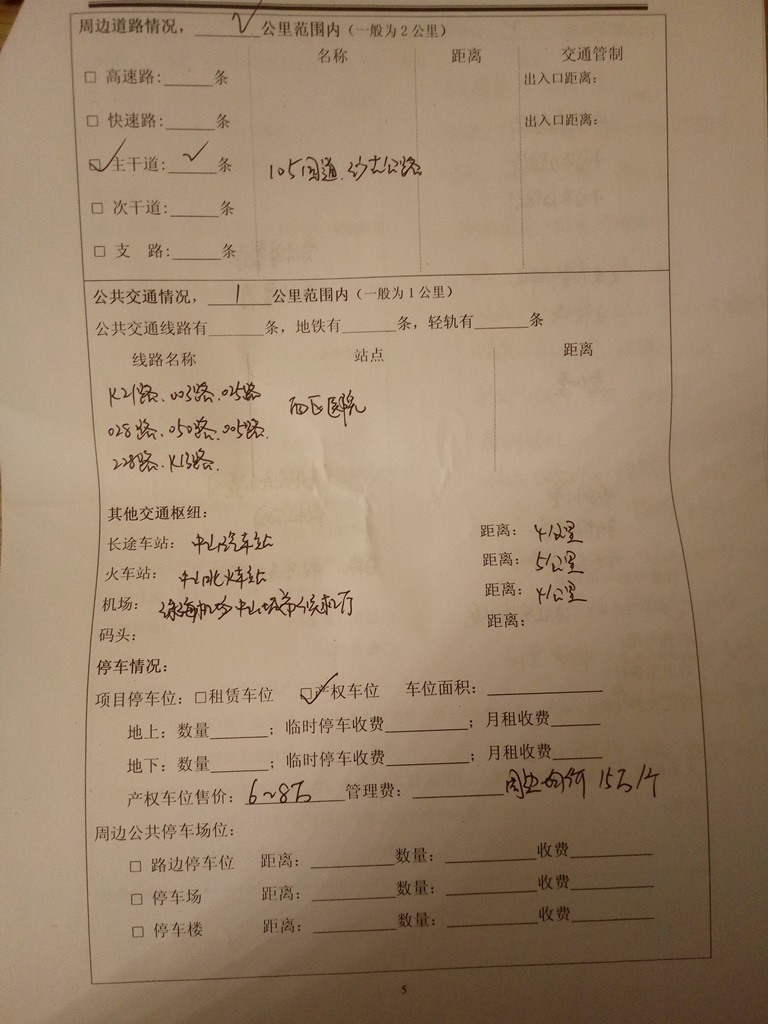 周边道路情况，____√____公里范围内（一般为2公里）
名称 距离 交通管制
□ 高速路：_____条 出入口距离：
□ 快速路：_____条 出入口距离：
☑ 主干道：__√__条 105国道、沙古公路
□ 次干道：_____条
□ 支 路：_____条
公共交通情况，___1___公里范围内（一般为1公里）
公共交通线路有______条，地铁有______条，轻轨有______条
线路名称 站点 距离
K21路、003路、025路 西区医院
028路、050路、005路、
228路、K13路、
其他交通枢纽：
长途车站：中山汽车站 距离：4公里
火车站：中山北火车站 距离：5公里
机场：珠海机场中山城市候机厅 距离：4公里
码头： 距离：
停车情况：
项目停车位：□租赁车位 ☑产权车位 车位面积：__________
地上：数量______；临时停车收费________；月租收费_____
地下：数量______；临时停车收费________；月租收费_____
产权车位售价：6~8万 管理费：________周边均价 15万/个
周边公共停车场位：
□ 路边停车位 距离：________数量：________收费________
□ 停车场 距离：________数量：________收费________
□ 停车楼 距离：________数量：________收费________
5